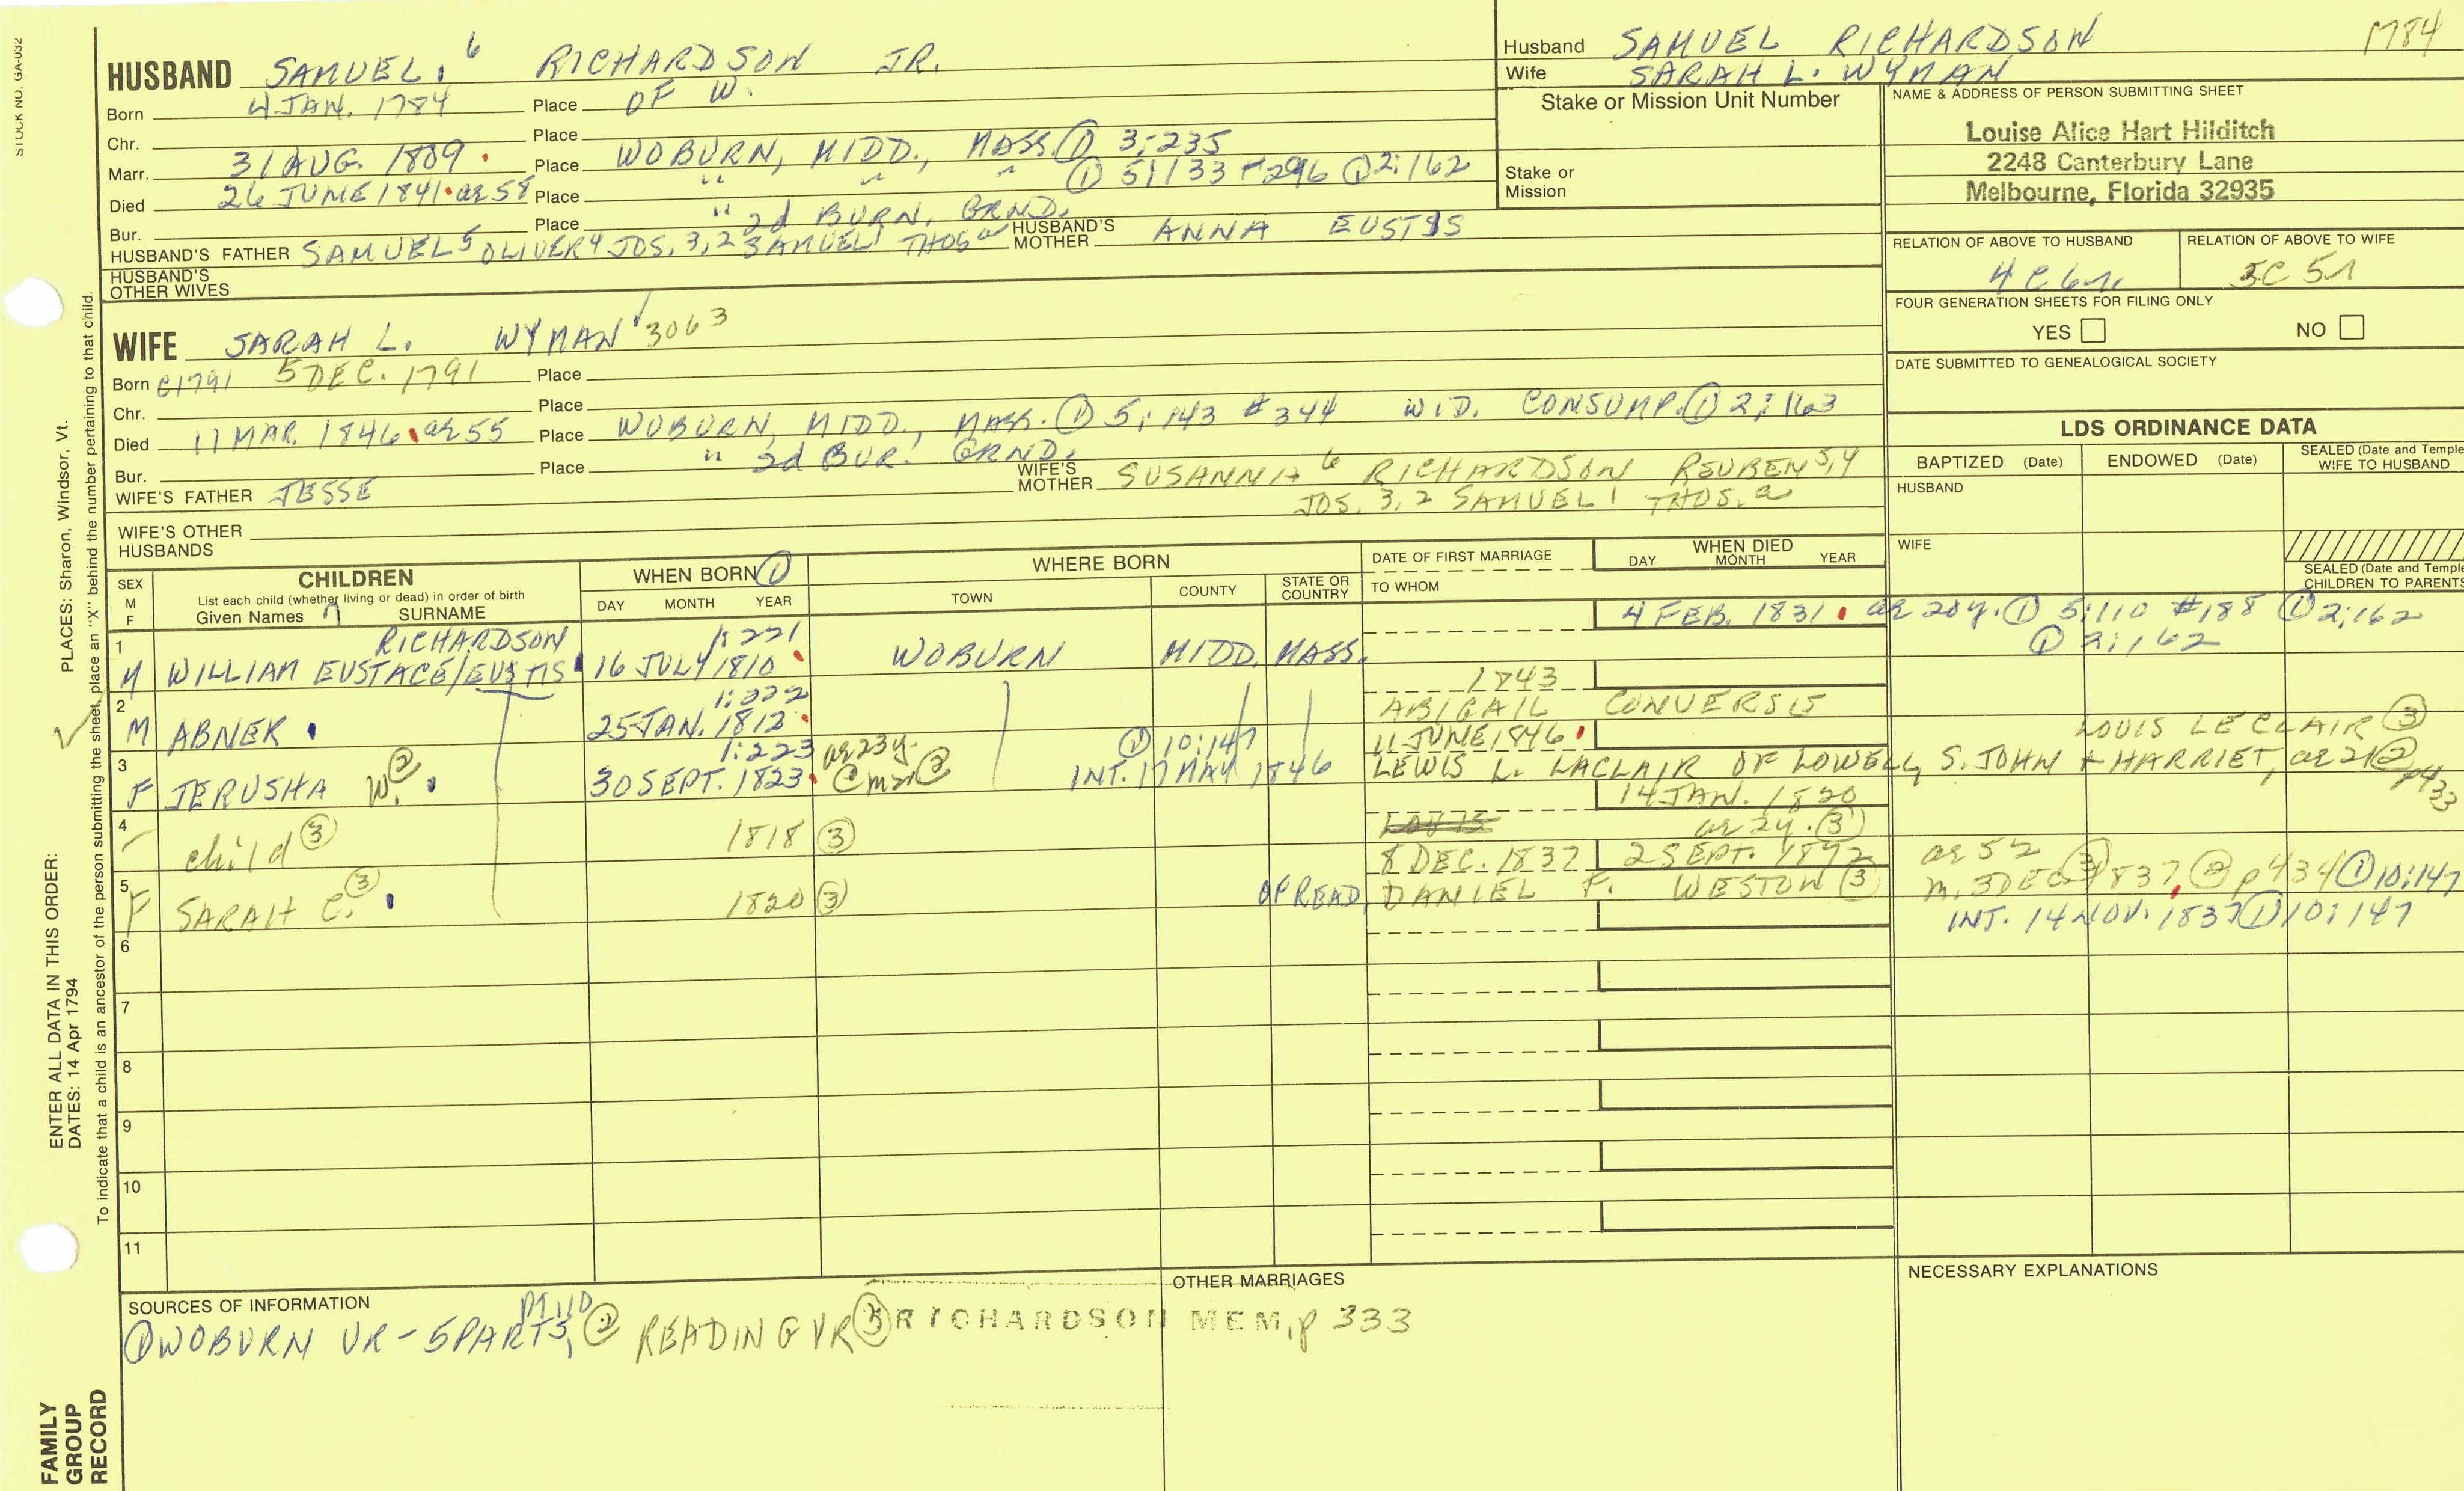 STOCK NO. GA-032
HUSBAND SAMUEL, 6 RICHARDSON JR.
Born 4 JAN. 1784 Place OF W.
Chr. Place
Marr. 31 AUG. 1809 Place WOBURN, MIDD., MASS. ① 3:235
Died 26 JUNE 1841 ae 58 Place " " " ① 5:133 #296 ① 2:162
Bur. Place " 2d BURN. GRND.
HUSBAND'S FATHER SAMUEL 5 OLIVER 4 JOS. 3,2 SAMUEL 1 THOS. a HUSBAND'S MOTHER ANNA EUSTIS
HUSBAND'S OTHER WIVES
WIFE SARAH L. WYMAN 3063
Born c1791 5 DEC. 1791 Place
Chr. Place
Died 11 MAR. 1846 ae 55 Place WOBURN, MIDD., MASS. ① 5:143 #344 WID. CONSUMP. ① 2:163
Bur. Place " 2d BUR. GRND.
WIFE'S FATHER JESSE WIFE'S MOTHER SUSANNA 6 RICHARDSON REUBEN 5,4
JOS. 3,2 SAMUEL 1 THOS. a
WIFE'S OTHER HUSBANDS
Husband SAMUEL RICHARDSON 1784
Wife SARAH L. WYMAN
Stake or Mission Unit Number
Stake or Mission
NAME & ADDRESS OF PERSON SUBMITTING SHEET
Louise Alice Hart Hilditch
2248 Canterbury Lane
Melbourne, Florida 32935
RELATION OF ABOVE TO HUSBAND RELATION OF ABOVE TO WIFE
4C6r. 5C5r
FOUR GENERATION SHEETS FOR FILING ONLY
YES NO
DATE SUBMITTED TO GENEALOGICAL SOCIETY
LDS ORDINANCE DATA
BAPTIZED (Date) ENDOWED (Date) SEALED (Date and Temple WIFE TO HUSBAND
HUSBAND
WIFE
SEALED (Date and Temple CHILDREN TO PARENTS
SEX M F CHILDREN List each child (whether living or dead) in order of birth Given Names SURNAME
WHEN BORN ① DAY MONTH YEAR
WHERE BORN TOWN COUNTY STATE OR COUNTRY
DATE OF FIRST MARRIAGE TO WHOM
WHEN DIED DAY MONTH YEAR
1 RICHARDSON 1:221 4 FEB. 1831 ae 20y. ① 5:110 #188 ① 2:162
M WILLIAM EUSTACE/EUSTIS 16 JULY 1810 WOBURN MIDD. MASS. ① 2:162
2 1:222 1843
M ABNER 25 JAN. 1812 ABIGAIL CONVERSE
3 1:223 ae 23y. ① 10:147 11 JUNE 1846 LOUIS LECLAIR ③
F JERUSHA W. ② 30 SEPT. 1823 @ mar ② INT. 17 MAY 1846 LEWIS L. LACLAIR OF LOWELL, S. JOHN + HARRIET, ae 21 ② p433
4 14 JAN. 1820
child ③ 1818 ③ ae 2y. ③
5 8 DEC. 1837 2 SEPT. 1872 ae 52
F SARAH C. ③ 1820 ③ OF READ. DANIEL F. WESTON ③ m. 3 DEC. 1837, ② p434 ① 10:147
INT. 14 NOV. 1837 ① 10:147
6
7
8
9
10
11
SOURCES OF INFORMATION
OTHER MARRIAGES
NECESSARY EXPLANATIONS
① WOBURN VR - 5 PARTS, ② READING VR ③ RICHARDSON MEM, p 333
ENTER ALL DATA IN THIS ORDER:
DATES: 14 Apr 1794
PLACES: Sharon, Windsor, Vt.
To indicate that a child is an ancestor of the person submitting the sheet, place an "X" behind the number pertaining to that child.
FAMILY GROUP RECORD